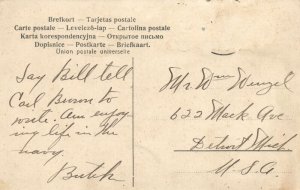 Brefkort — Tarjetas postale
Carte postale — Levelező-lap — Cartolina postale
Karta korespondencyjna — Открытое письмо
Dopisnice — Postkarte — Briefkaart.
Union postale universelle
Say Bill tell
Carl Brown to
write. Am enjoy
ing life in the
navy.
Butch
Mr Wm Wenzel
622 Mack Ave
Detroit Mich
U.S.A